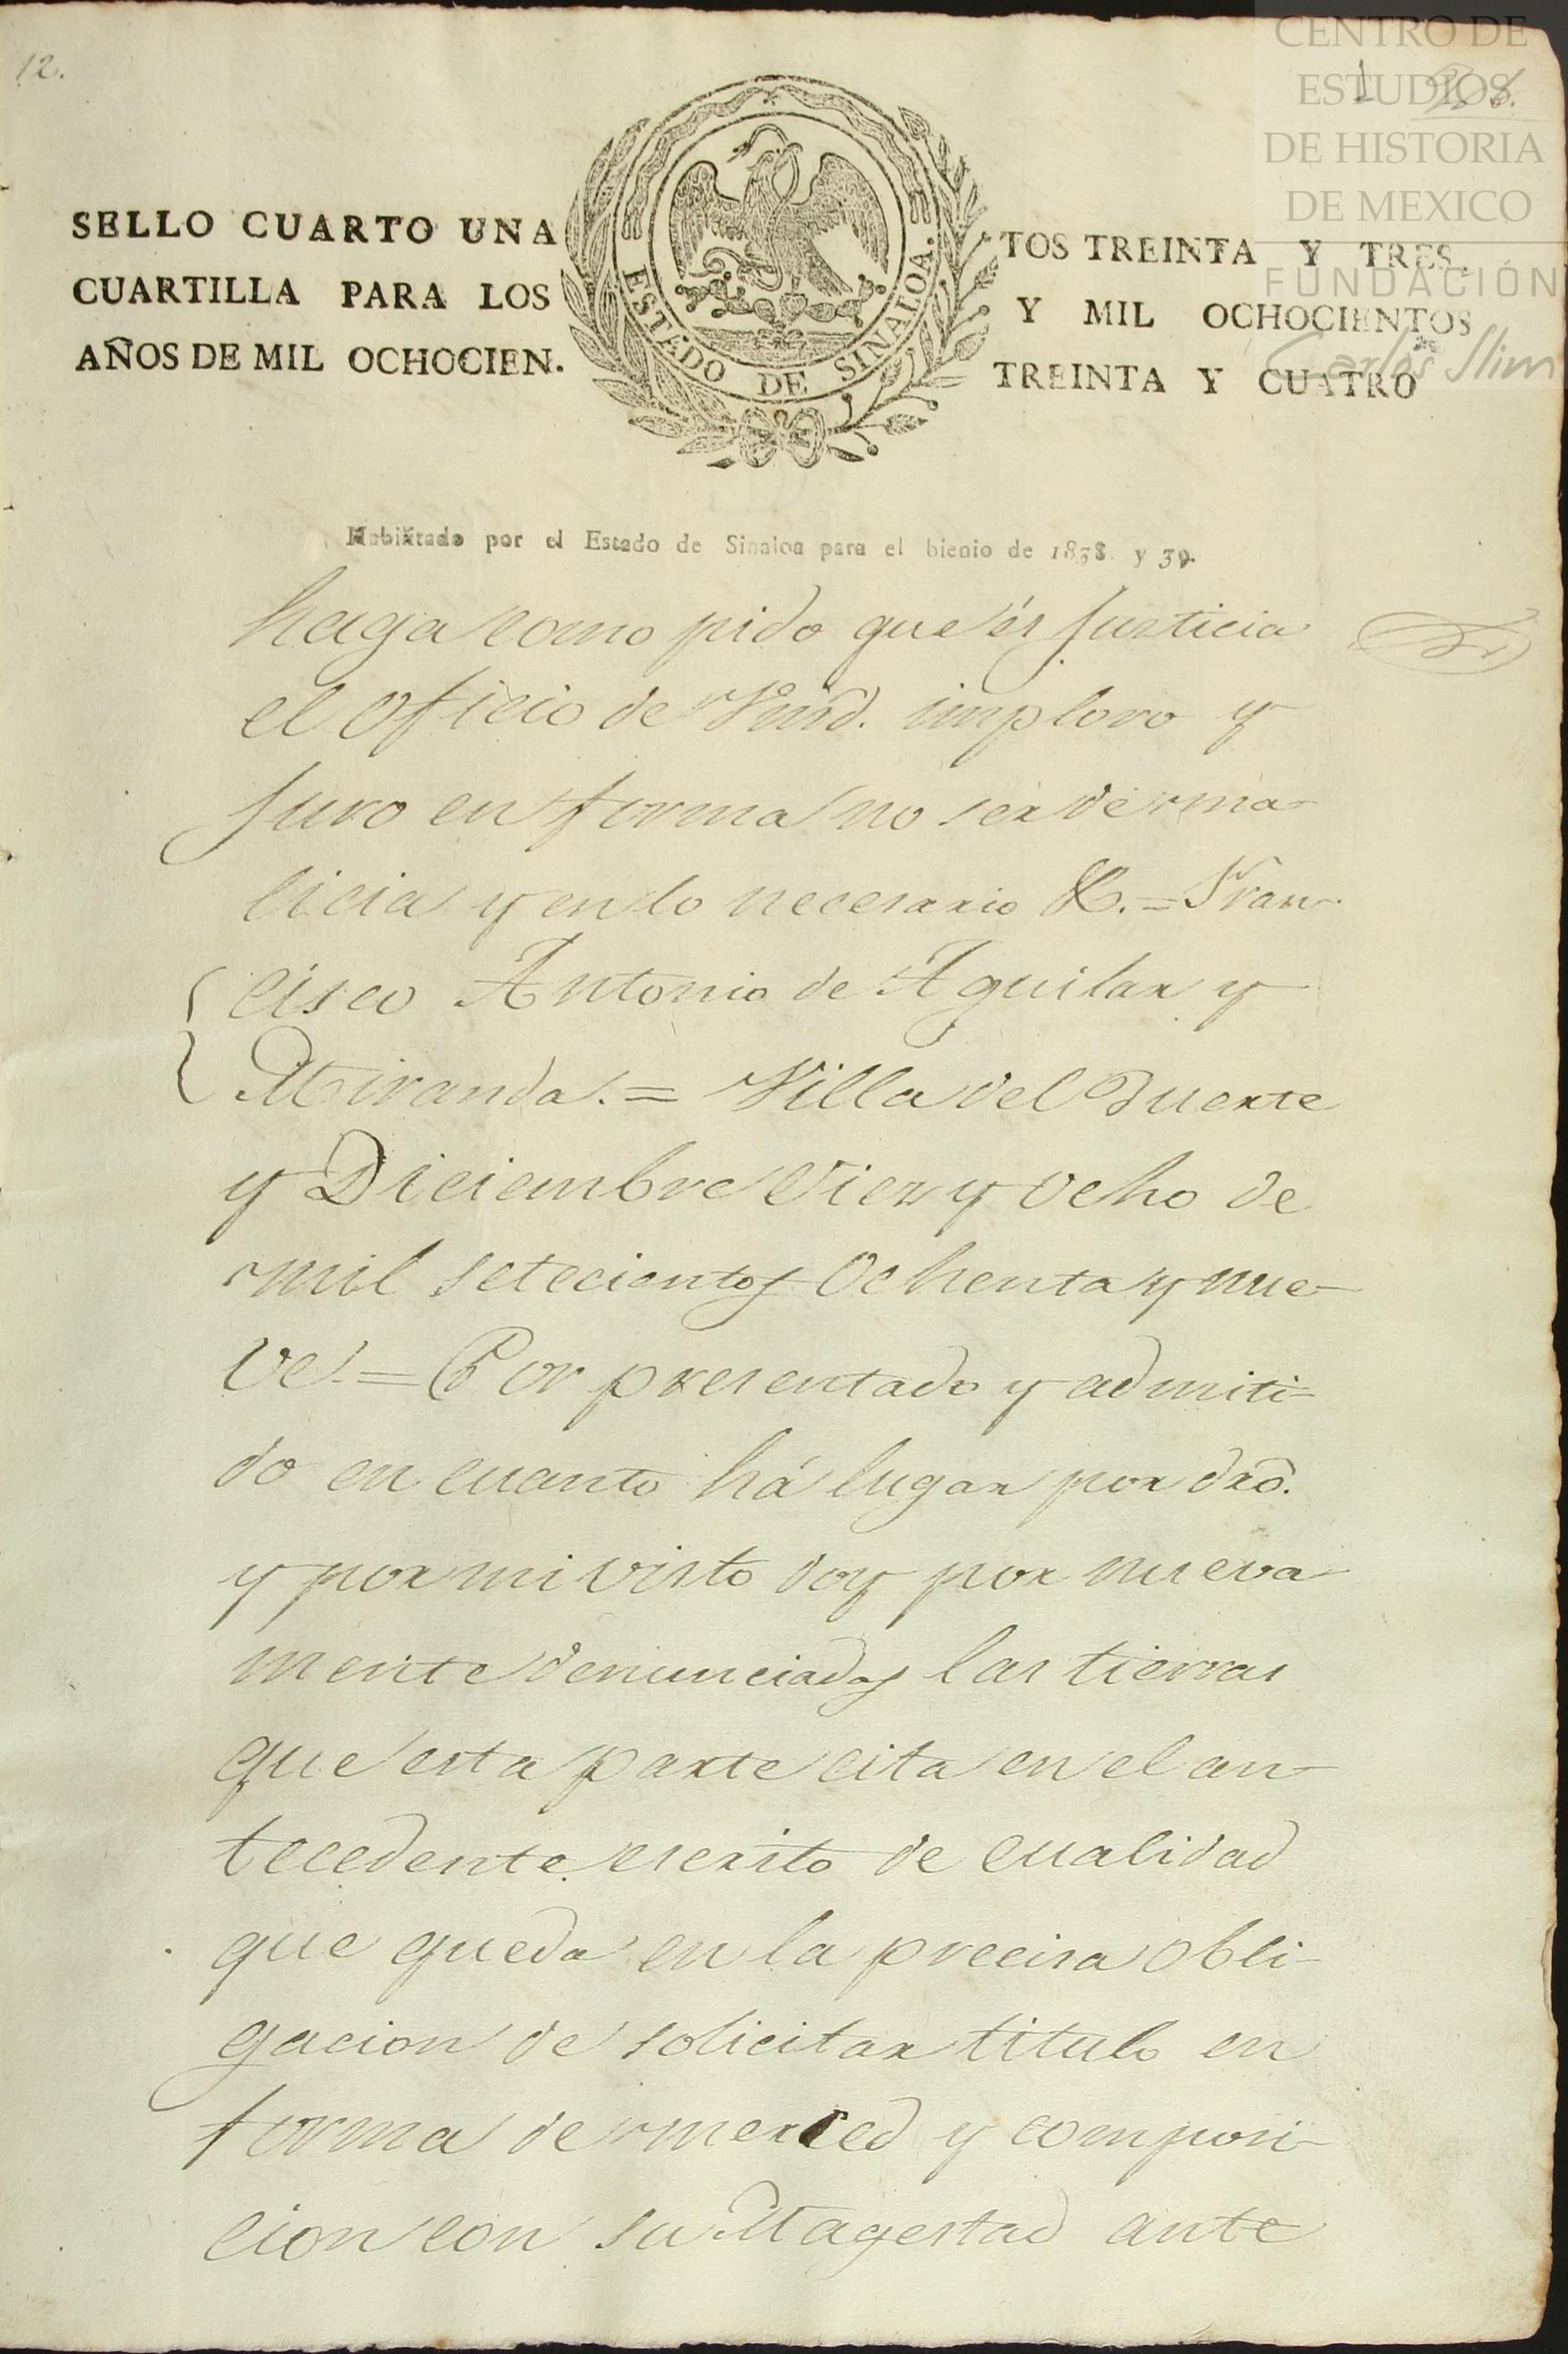 12.
CENTRO DE
ESTUDIOS
DE HISTORIA
DE MEXICO
FUNDACIÓN
Carlos Slim
1
SELLO CUARTO UNA
CUARTILLA PARA LOS
AÑOS DE MIL OCHOCIEN.
ESTADO DE SINALOA.
TOS TREINTA Y TRES.
Y MIL OCHOCIENTOS
TREINTA Y CUATRO
Habilitado por el Estado de Sinaloa para el bienio de 1838. y 39.
haga como pido que és Justicia
el oficio de Vmd. imploro y
Juro en forma no ser de ma-
licia y en lo necesario &.= Fran-
cisco Antonio de Aguilar y
Miranda.= Villa del Fuerte
y Diciembre Diez y ocho de
mil setecientos ochenta y nue-
ve.= Por presentado y admiti-
do en cuanto há lugar por dro.
y por mi visto doy por nueva-
mente denunciadas las tierras
que esta parte cita en el an-
tecedente escrito de cualidad
que queda en la precisa obli-
gacion de solicitar titulo en
forma de merced y composi-
cion con su Magestad ante